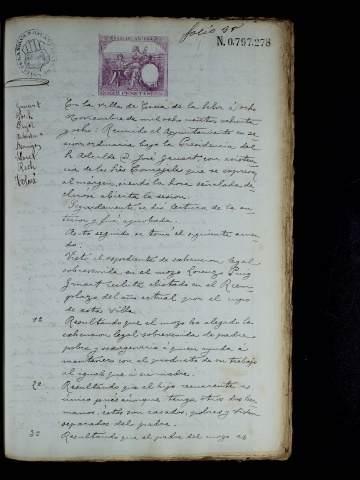 folio 98
N. 0.797.278
En la villa de Cassá de la Selva á ocho
Noviembre de mil ocho cientos ochenta
y ocho: Reunido el Ayuntamiento en se-
sion ordinaria bajo la Presidencia del
Sr Alcalde D. José con asisten-
cia de los Sres Concejales que se expresan
al márgen, siendo la hora señalada, de-
claróse abierta la sesion.
Seguidamente se dió lectura de la an-
terior y fué aprobada.
Acto seguido se tomó el siguiente acuer-
do:
Visto el espediente de esencion legal
sobrevenida en el mozo Lorenzo Puig
recluta alistado en el Reem-
plazo del año actual por el cupo
de esta Villa
1º Resultando que el mozo ha alegado la
esencion legal sobrevenida de padre
pobre y sexagenario á quien ayuda á
mantener con el producto de su trabajo
al igual que á su madre.
2º Resultando que el hijo recurrente es
único pués aunque tenga otros dos her-
manos, éstos son casados, pobres y viven
separados del padre.
3º Resultando que el padre del mozo es